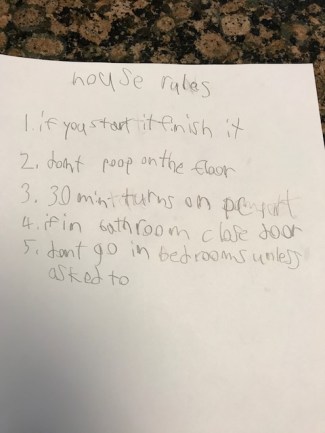 house rules
1. if you start it finish it
2. dont poop on the floor
3. 30 mint turns on
4. if in bathroom close door
5. dont go in bedrooms unless
asked to